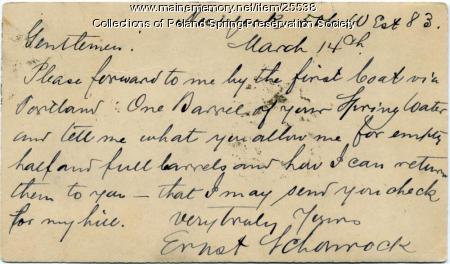 www.mainememory.net/item/25538
Collections of Poland Spring Preservation Society
West 83.
March 14th
Gentlemen.
Please forward to me by the first boat via
Portland: One Barrel of your Spring Water
and tell me what you allow me for empty
half and full barrels and how I can return
them to you — that I may send you check
for my bill. Very truly Yours
Ernst Schonrock